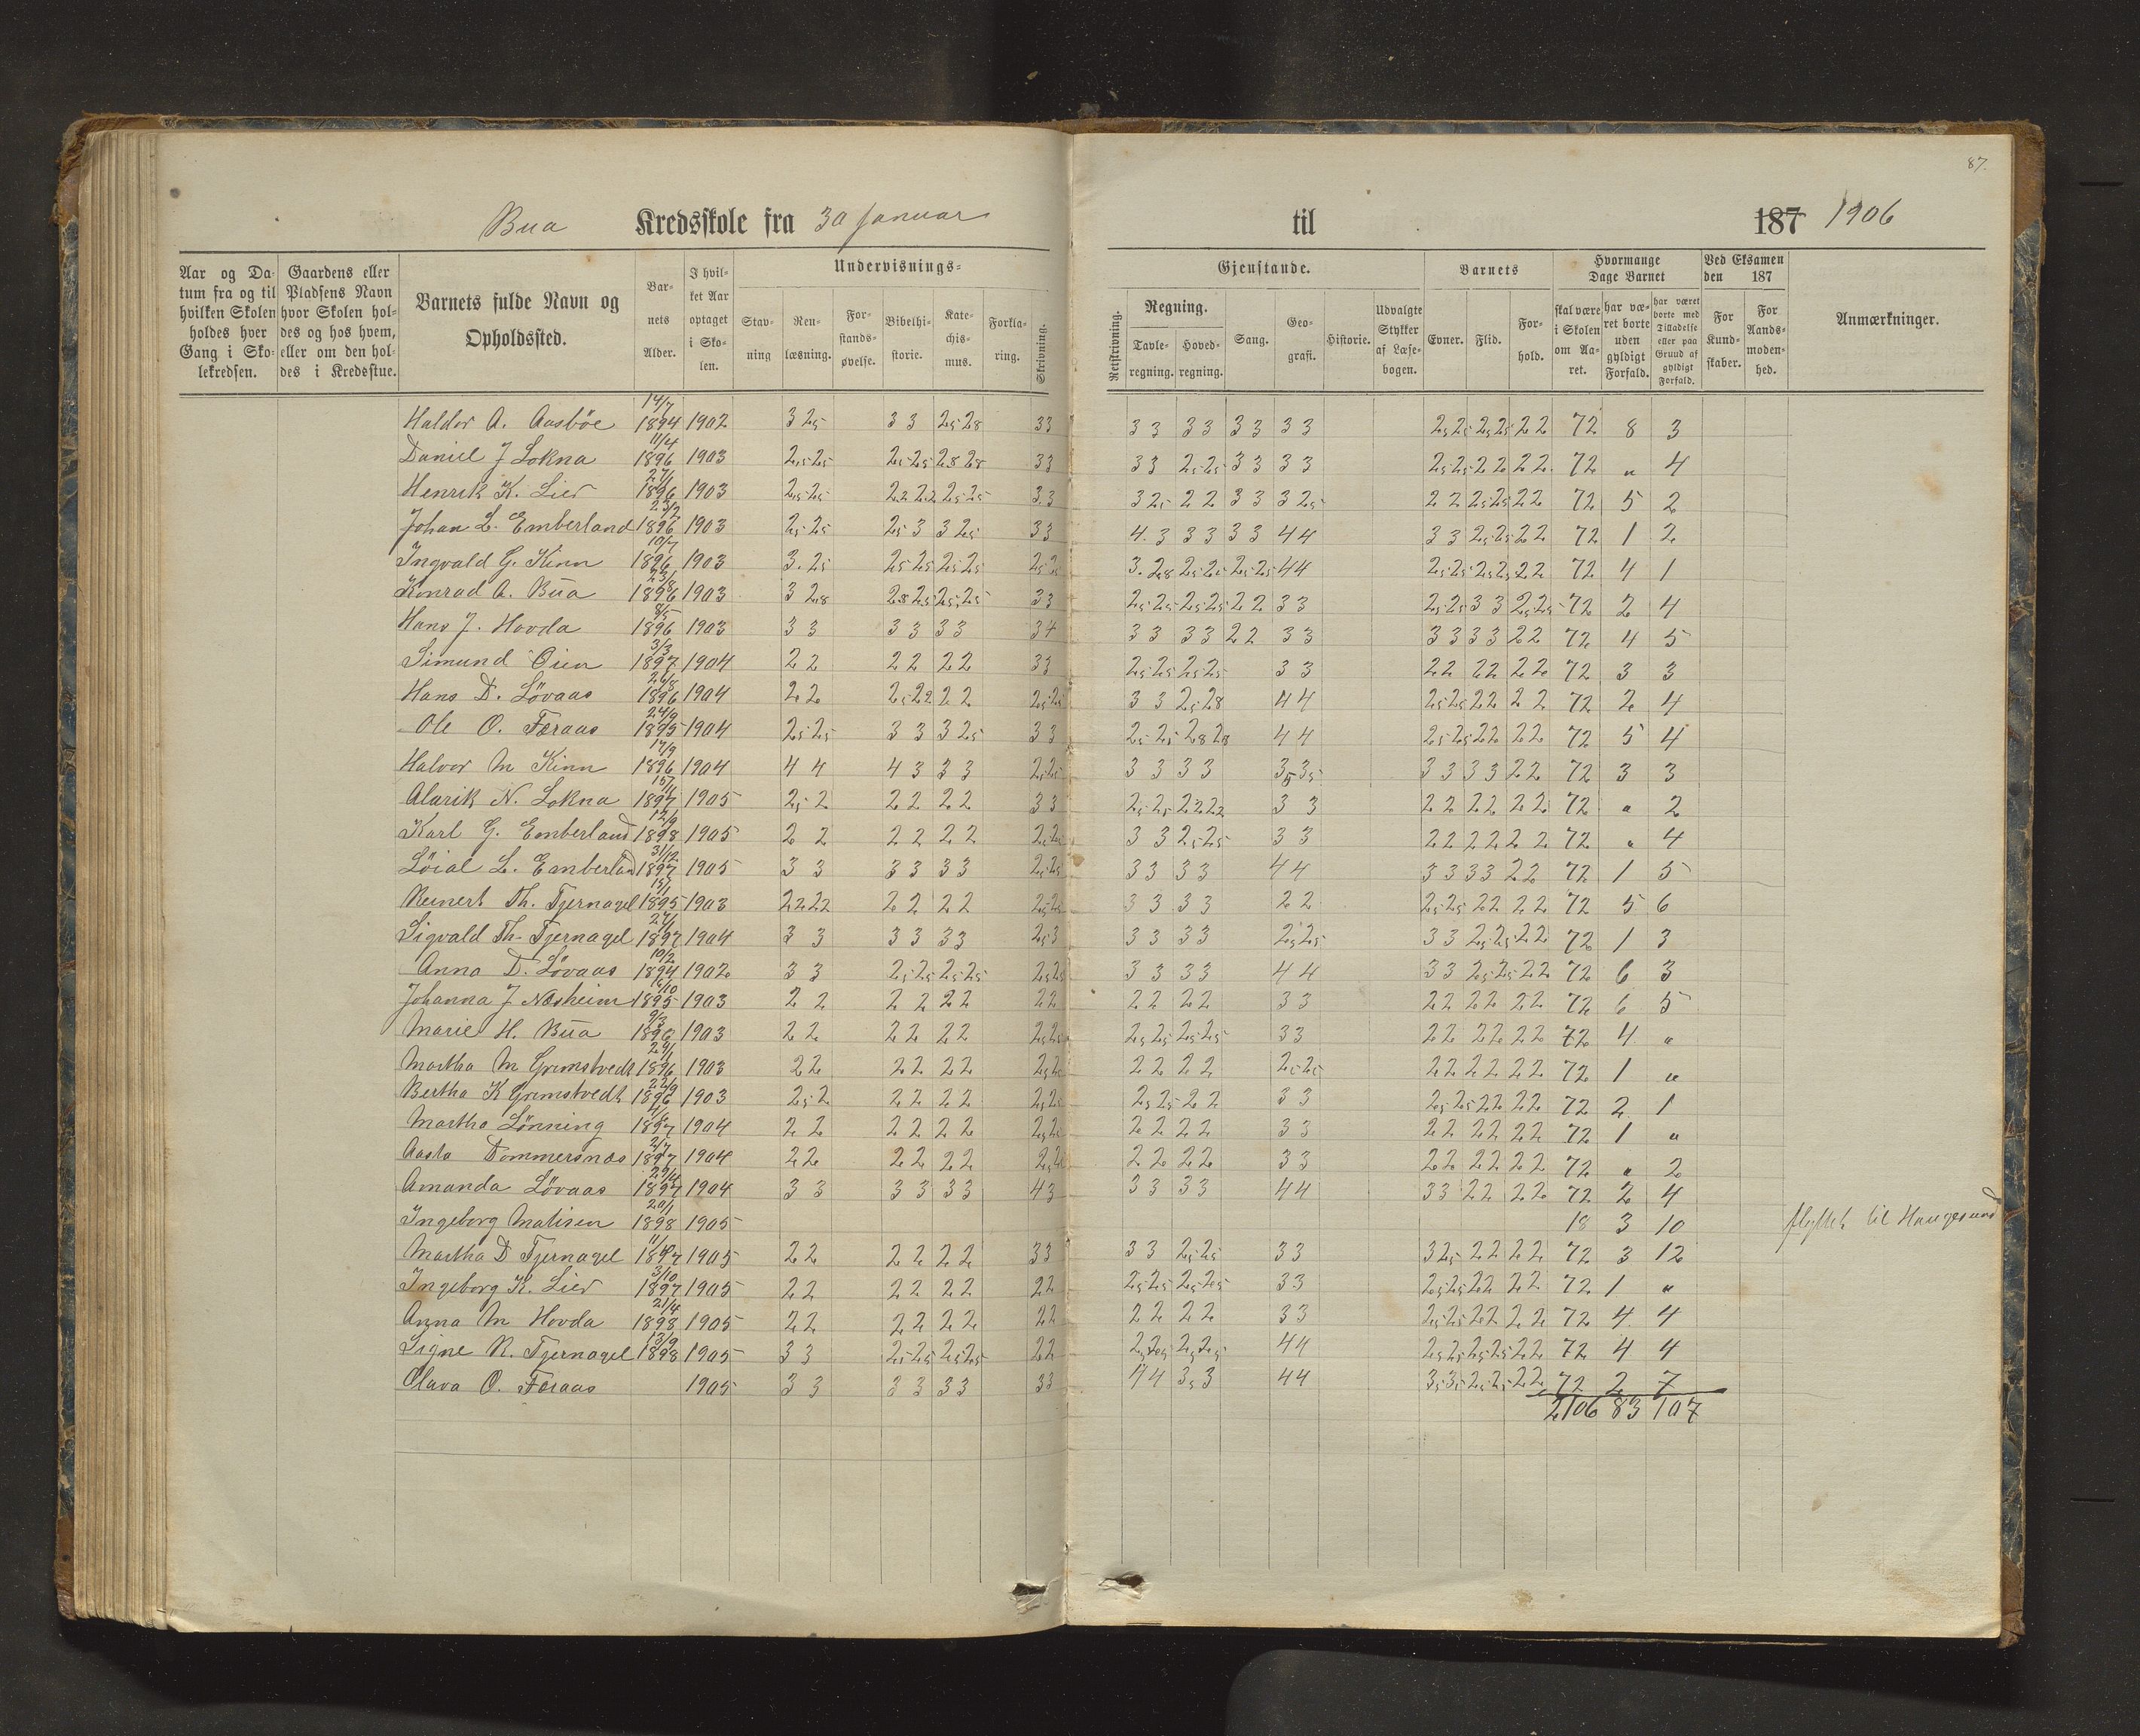 87.
Bua Kredsskole fra 30 Januar til 187 1906
Aar og Datum fra og til hvilken Skolen holdes hver Gang i Skolekredsen.
Gaardens eller Pladsens Navn hvor Skolen holdes og hos hvem, eller om den holdes i Kredsstue.
Barnets fulde Navn og Opholdssted.
Barnets Alder.
I hvilket Aar optaget i Skolen.
Undervisnings-
Stavning
Renlæsning.
Forstandsøvelse.
Bibelhistorie.
Katechismus.
Forklaring.
Skrivning.
Gjenstande.
Retskrivning.
Regning.
Tavleregning.
Hovedregning.
Sang.
Geografi.
Historie.
Udvalgte Stykker af Læsebogen.
Barnets
Evner.
Flid.
Forhold.
Hvormange Dage Barnet
skal være i Skolen om Aaret.
har været borte uden gyldigt Forfald.
har været borte med Tilladelse eller paa Grund af gyldigt Forfald.
Ved Eksamen den 187
For Kundskaber.
For Aandsmodenhed.
Anmærkninger.
Haldor A. Aasböe 14/7 1894 1902 3 2,5 3 3 2,5 2,8 3 3 3 3 3 3 3 3 3 3 2,5 2,5 2,5 2,5 2 2 72 8 3
Daniel J Lokna 11/4 1896 1903 2,5 2,5 2,5 2,5 2,8 2,8 3 3 3 3 2,5 2,5 3 3 3 3 2,5 2,5 2 2 2 2 72 " 4
Henrik K. Lier 27/1 1896 1903 2,5 2,5 2,2 2,2 2,5 2,5 3 3 3 2,5 2 2 3 3 3 2,5 2 2 2,5 2,5 2 2 72 5 2
Johan L. Emberland 23/2 1896 1903 2,5 2,5 2,5 3 3 2,5 3 3 4 3 3 3 3 3 4 4 3 3 2,5 2,5 2 2 72 1 2
Ingvald G. Kinn 10/7 1896 1903 3 2,5 2,5 2,5 2,5 2,5 2,5 2,5 3 2,8 2,5 2,5 2,5 2,5 4 4 2,5 2,5 2,5 2,5 2 2 72 4 1
Konrad A. Bua 1896 1903 3 2,8 2,8 2,5 2,5 2,5 3 3 2,5 2,5 2,5 2,5 2 2 3 3 2,5 2,5 3 3 2,5 2,5 72 2 4
Hans J. Hovda 8/5 1896 1903 3 3 3 3 3 3 3 4 3 3 3 3 2 2 3 3 3 3 3 3 2 2 72 4 5
Simund Öien 3/3 1897 1904 2 2 2 2 2 2 3 3 2,5 2,5 2,5 2,5 3 3 2 2 2 2 2 2 72 3 3
Hans D. Lövaas 26/8 1896 1904 2 2 2,5 2,2 2 2 2,5 2,5 3 3 2,5 2,8 4 4 2,5 2,5 2 2 2 2 72 2 4
Ole O. Færaas 24/9 1895 1904 2,5 2,5 3 3 3 2,5 3 3 2,5 2,5 2,8 2,8 4 4 2,5 2,5 2 2 2 2 72 5 4
Halvor M Kinn 17/9 1896 1904 4 4 4 3 3 3 2,5 2,5 3 3 3 3 3,5 3,5 3 3 3 3 2 2 72 3 3
Alarik N. Lokna 1897 1905 2,5 2 2 2 2 2 3 3 2,5 2,5 2,2 2,2 3 3 2 2 2 2 2 2 72 " 2
Karl G. Emberland 12/9 1898 1905 2 2 2 2 2 2 2,5 2,5 3 3 2,5 2,5 3 3 2 2 2 2 2 2 72 " 4
Löial L. Emberland 31/12 1897 1905 3 3 3 3 3 3 2,5 2,5 3 3 3 3 4 4 3 3 3 3 2 2 72 1 5
Reinert Th. Tjernagel 15/1 1895 1903 2,2 2,2 2 2 2 2 2,5 2,5 3 3 3 3 2 2 2,5 2,5 2 2 2 2 72 5 6
Sigvald Th. Tjernagel 27/1 1897 1904 3 3 3 3 3 3 2,5 3 3 3 3 3 2,5 2,5 3 3 2,5 2,5 2 2 72 1 3
Anna D. Lövaas 10/2 1894 1902 3 3 2,5 2,5 2,5 2,5 2,5 2,5 3 3 3 3 4 4 3 3 2,5 2,5 2 2 72 6 3
Johanna J Næsheim 1895 1903 2 2 2 2 2 2 2 2 2 2 2 2 3 3 2 2 2 2 2 2 72 6 5
Marie H. Bua 9/3 1896 1903 2 2 2 2 2 2 2,5 2,5 2,5 2,5 2,5 2,5 3 3 2 2 2 2 2 2 72 4 "
Martha M Grimstvedt 29/1 1896 1903 2 2 2 2 2 2 2,5 2,5 2 2 2 2 2,5 2,5 2 2 2 2 2 2 72 1 "
Bertha K Grimstvedt 22/9 1896 1903 2,5 2 2 2 2 2 2,5 2,5 2,5 2,5 2 2 3 3 2,5 2,5 2 2 2 2 72 2 1
Martha Lönning 1897 1904 2 2 2 2 2 2 2,5 2,5 2 2 2 2 3 3 2 2 2 2 2 2 72 1 "
Aasta Tommersnæs 2/7 1897 1904 2 2 2 2 2 2 2,5 2,5 2 2 2 2 3 3 2 2 2 2 2 2 72 " 2
Amanda Lövaas 1897 1904 3 3 3 3 3 3 4 3 3 3 3 3 4 4 3 3 2 2 2 2 72 2 4
Ingeborg Matisen 20/1 1898 1905 18 3 10 flyttet til Haugesund
Martha D Tjernagel 1897 1905 2 2 2 2 2 2 3 3 3 3 2,5 2,5 3 3 3 2,5 2 2 2 2 72 3 12
Ingeborg K. Lier 3/10 1897 1905 2 2 2 2 2 2 2 2 2,5 2,5 2,5 2,5 3 3 2,5 2,5 2 2 2 2 72 1 "
Anna M Hovda 21/4 1898 1905 2 2 2 2 2 2 2 2 2 2 2 2 3 3 2,5 2,5 2 2 2 2 72 4 4
Signe R. Tjernagel 13/9 1898 1905 3 3 2,5 2,5 2,5 2,5 2 2 2,5 2,5 2,5 2,5 4 4 2,5 2,5 2,5 2,5 2 2 72 4 4
Olava O. Færaas 1905 3 3 3 3 3 3 3 3 4 4 3,5 3 4 4 3,5 3,5 2,5 2,5 2 2 72 2 7
2106 83 107